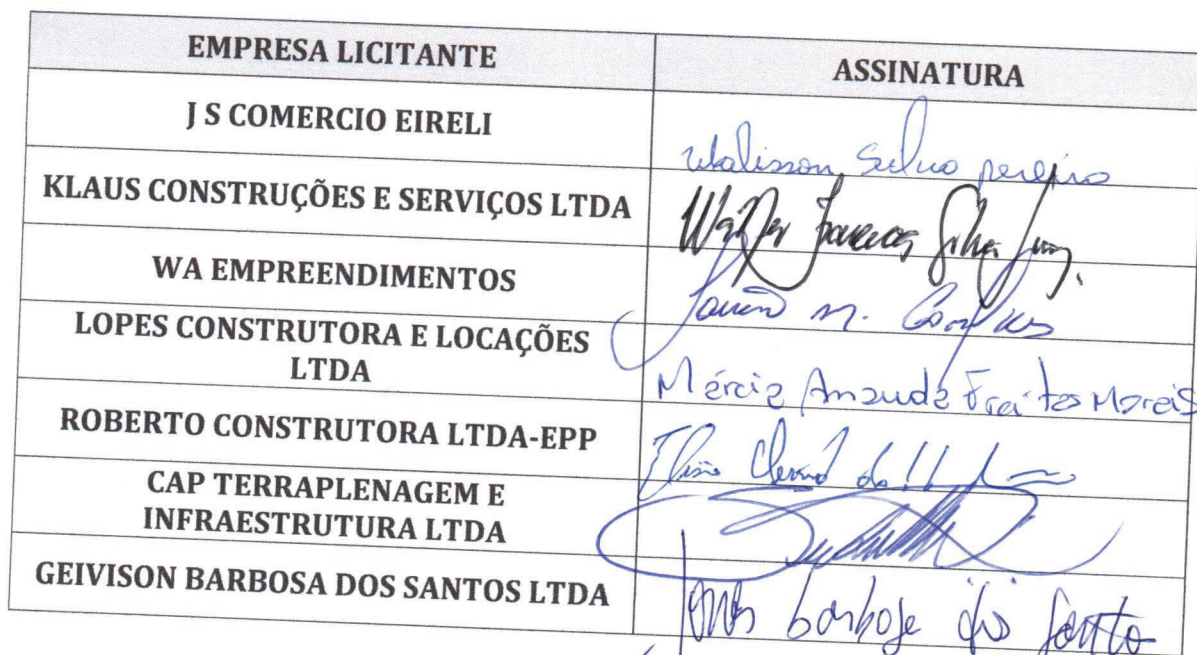 EMPRESA LICITANTE ASSINATURA
J S COMERCIO EIRELI Walisson Silva pereira
KLAUS CONSTRUÇÕES E SERVIÇOS LTDA Silva
WA EMPREENDIMENTOS M.
LOPES CONSTRUTORA E LOCAÇÕES
LTDA Mércia Amanda Freitas Morais
ROBERTO CONSTRUTORA LTDA-EPP
CAP TERRAPLENAGEM E
INFRAESTRUTURA LTDA
GEIVISON BARBOSA DOS SANTOS LTDA barbosa